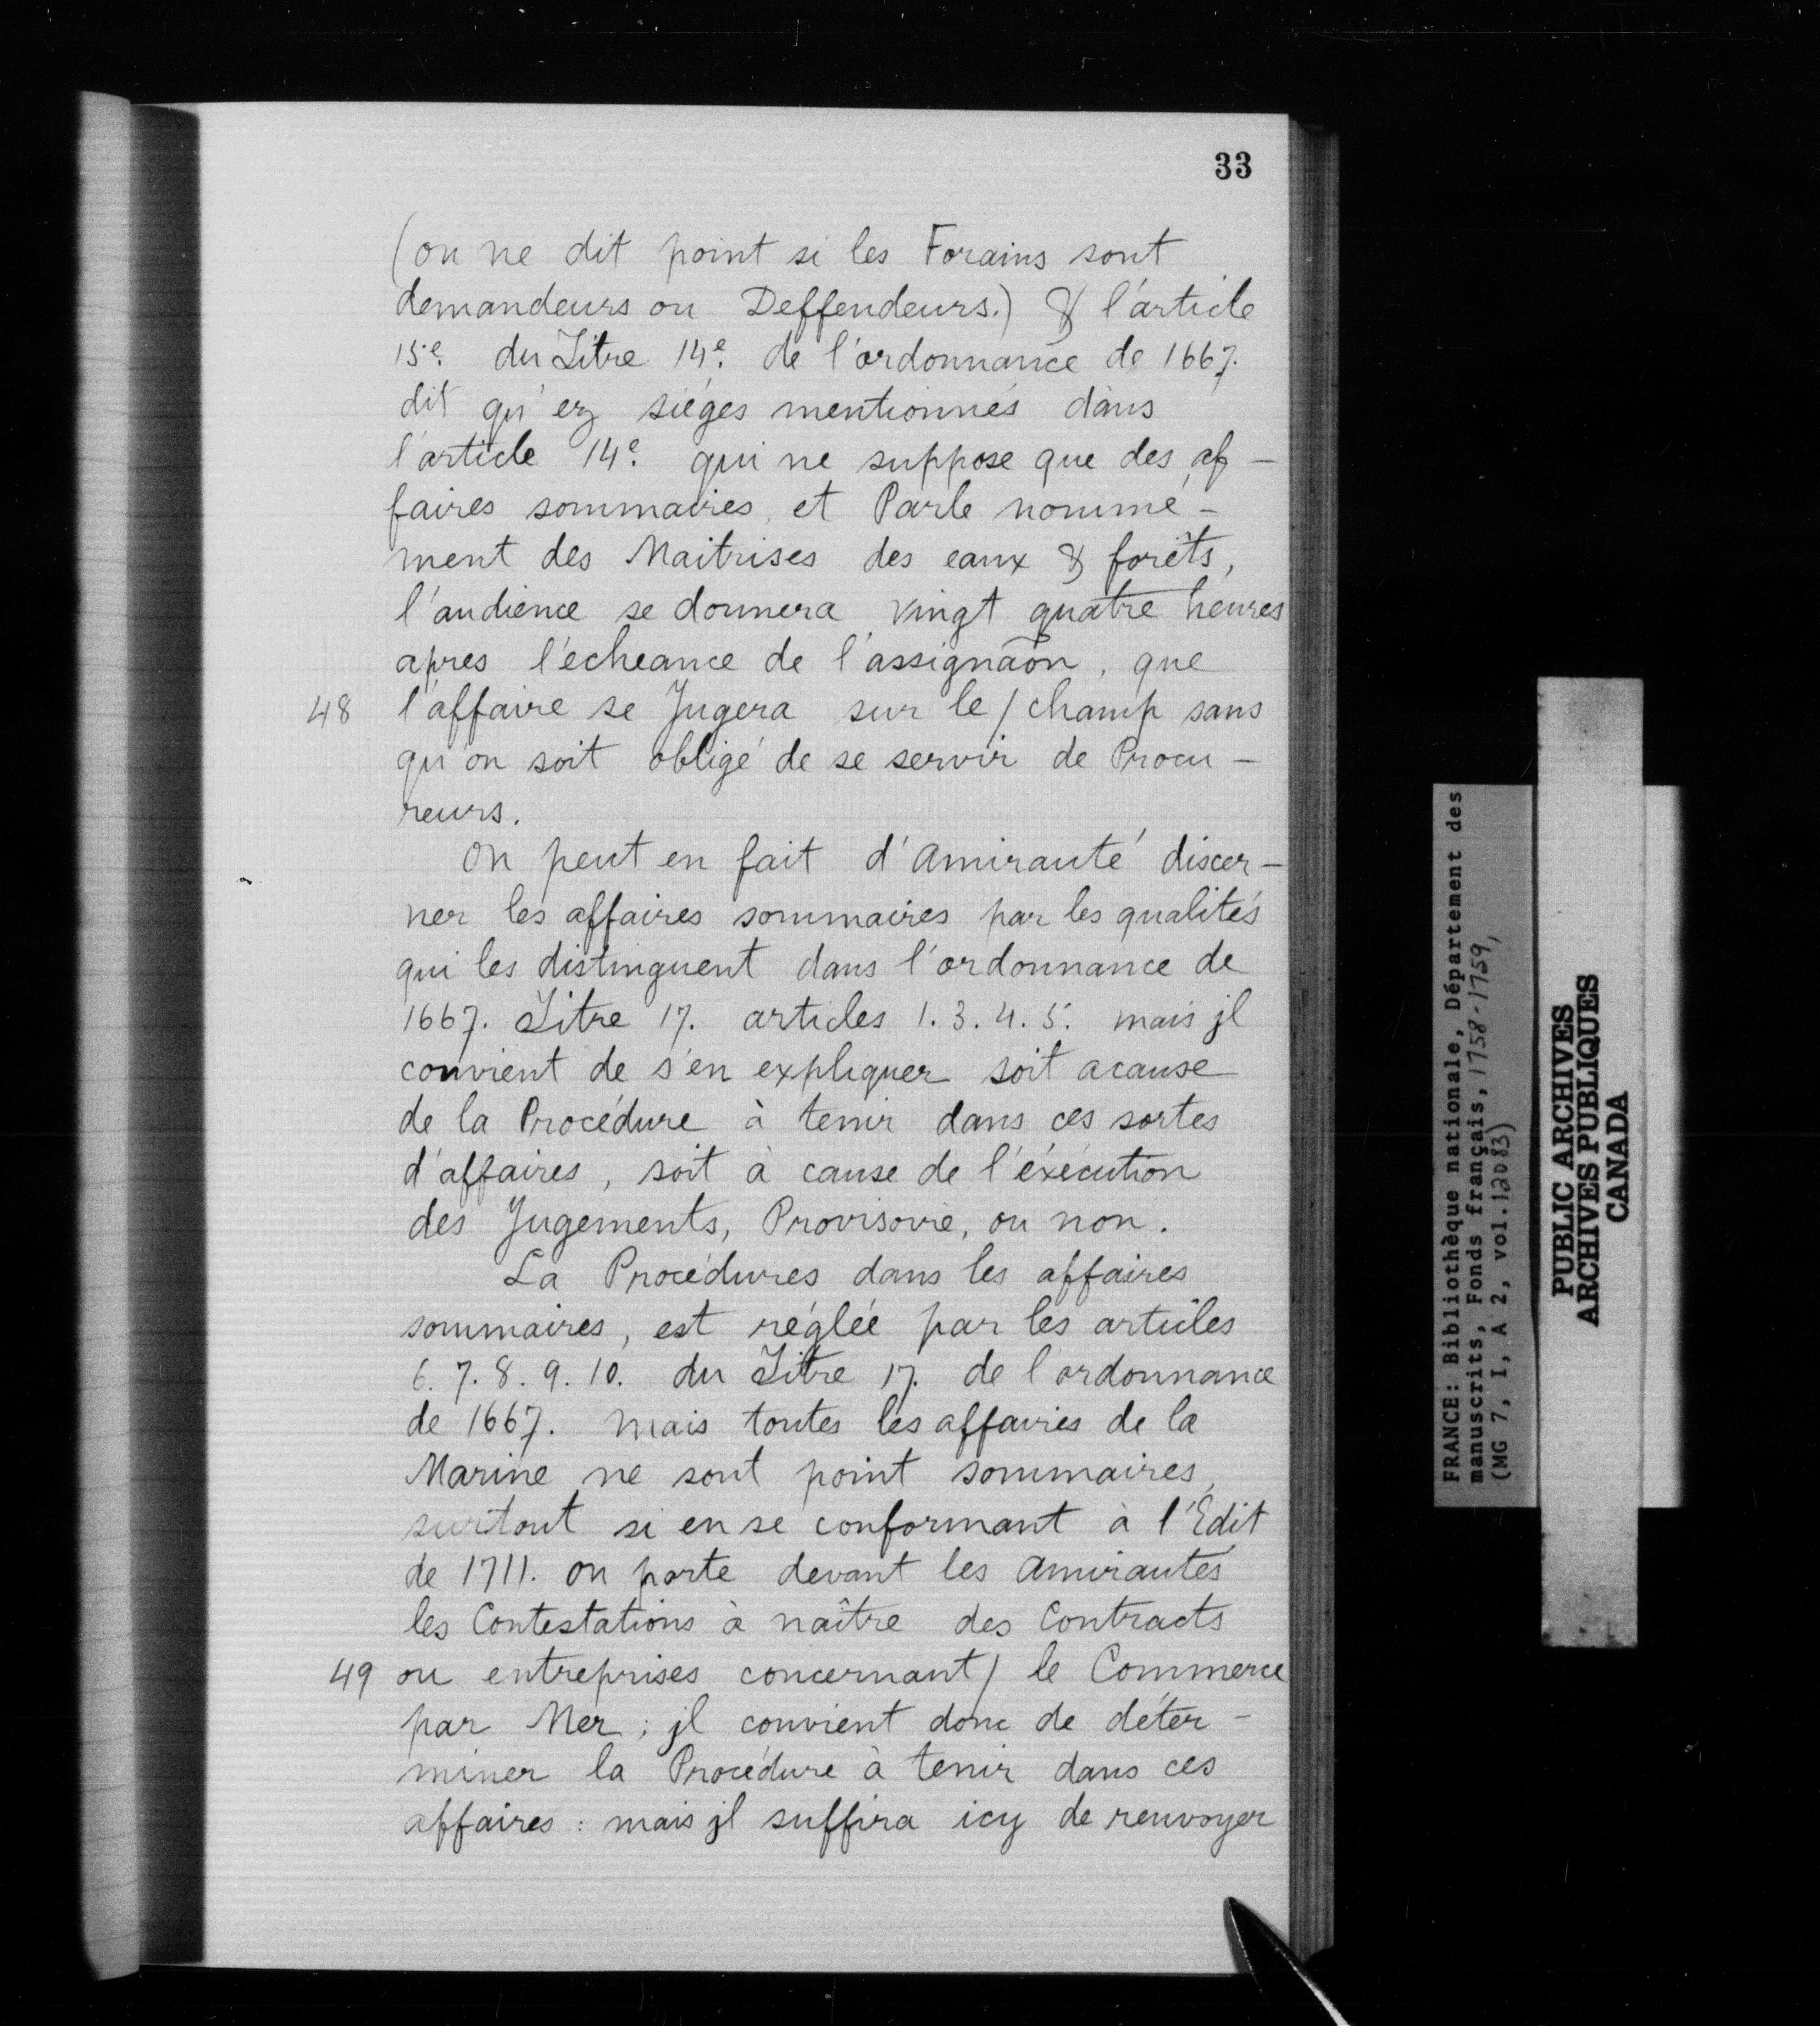 33
(on ne dit point si les Forains sont
demandeurs ou Deffendeurs.) & l'article
15e. du Titre 14e. de l'ordonnance de 1667.
dit qu'ez siéges mentionnés dans
l'article 14e. qui ne suppose que des af-
faires sommaires, et Parle nommé-
ment des Maitrises des eaux & forêts,
l'audience se donnera vingt quatre heures
apres l'écheance de l'assignãon, que
48 l'affaire se Jugera sur le / champ sans
qu'on soit obligé de se servir de Procu-
reurs.
On peut en fait d'Amirauté discer-
ner les affaires sommaires par les qualités
qui les distinguent dans l'ordonnance de
1667. Titre 17. articles 1. 3. 4. 5. mais jl
convient de s'en expliquer soit acause
de la Procédure à tenir dans ces sortes
d'affaires, soit à cause de l'éxécution
des Jugements, Provisoire, ou non.
La Procédures dans les affaires
sommaires, est réglée par les articles
6. 7. 8. 9. 10. du Titre 17. de l'ordonnance
de 1667. mais toutes les affaires de la
Marine ne sont point sommaires,
surtout si en se conformant à l'Edit
de 1711. on porte devant les Amirautés
les Contestations à naître des Contracts
49 ou entreprises concernant / le Commerce
par Mer; jl convient donc de déter-
miner la Procédure à tenir dans ces
affaires: mais jl suffira icy de renvoyer
FRANCE: Bibliothèque nationale, Département des
manuscrits, Fonds français, 1758-1759,
(MG 7, I, A 2, vol. 12083)
PUBLIC ARCHIVES
ARCHIVES PUBLIQUES
CANADA